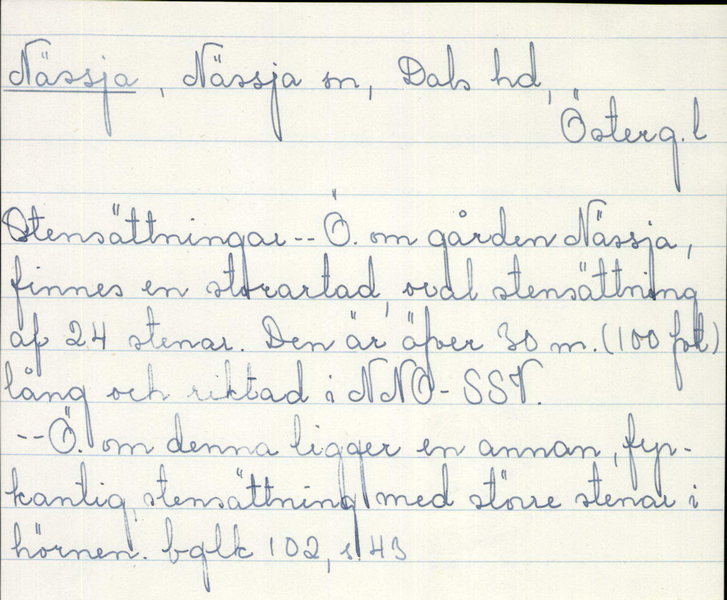 Nässja, Nässja sn, Dals hd,
Österg.l
Stensättningar -- Ö. om gården Nässja,
finnes en storartad, oval stensättning
af 24 stenar. Den är öfver 30 m. (100 fot)
lång och riktad i NNO-SSV.
-- Ö. om denna ligger en annan, fyr-
kantig, stensättning med större stenar i
hörnen. bglk 102, s. 43